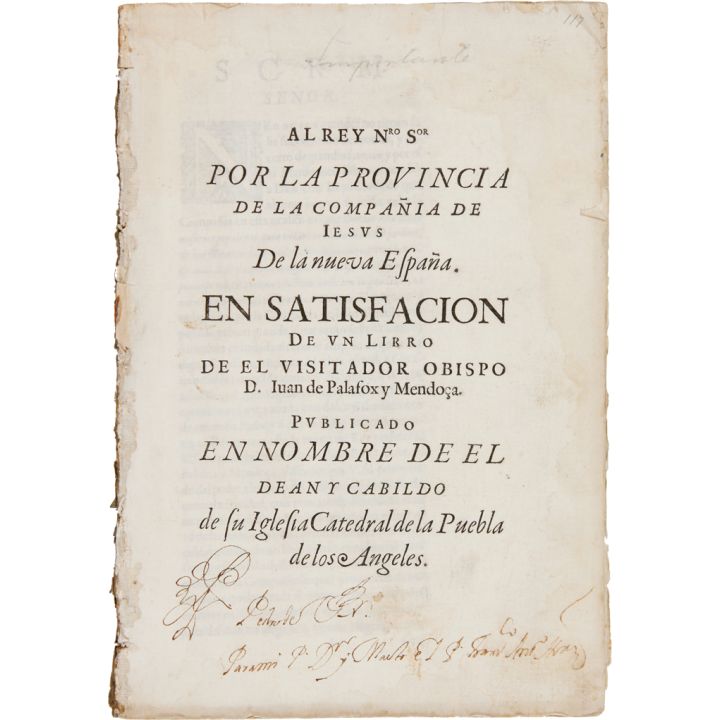 117
importante
S C R M
SEÑOR
AL REY Nᴿᴼ Sᴼᴿ
POR LA PROVINCIA
DE LA COMPAÑIA DE
IESVS
De la nueva Eſpaña.
EN SATISFACION
DE VN LIBRO
DE EL VISITADOR OBISPO
D. Iuan de Palafox y Mendoça.
PVBLICADO
EN NOMBRE DE EL
DEAN Y CABILDO
de ſu Igleſia Catedral de la Puebla
de los Angeles.